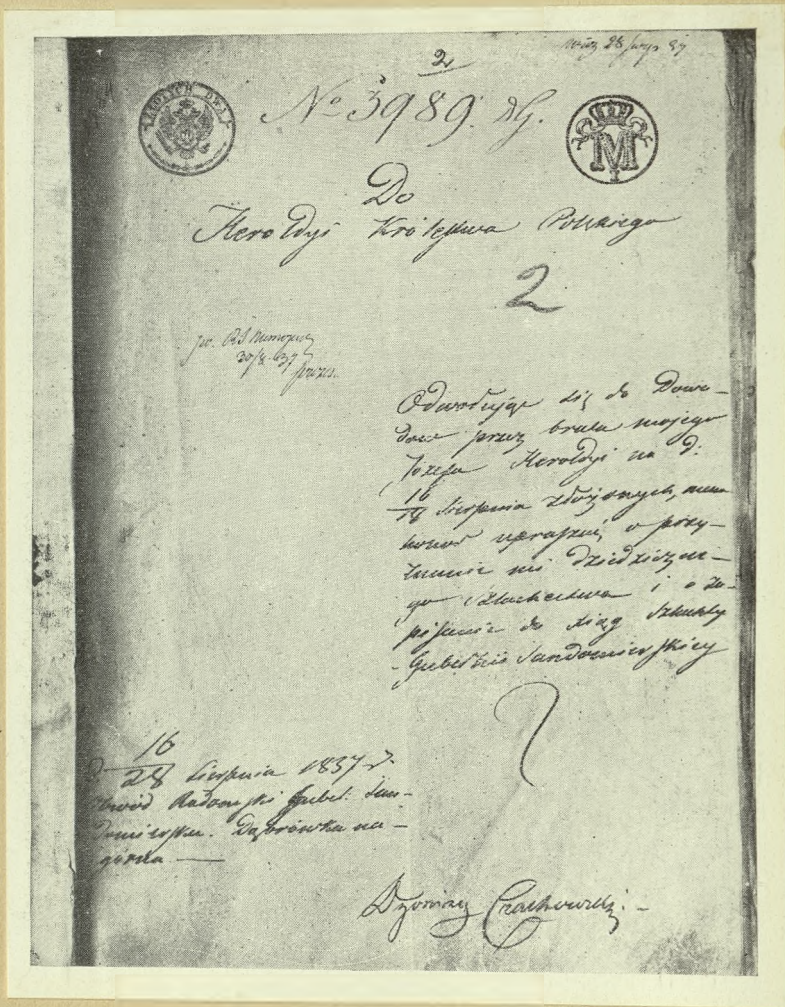 28 37
2
No 3989. DG.
ZŁOTYCH DWA
M
I
Do
Heroldyi Królestwa Polskiego
2
30/8 837
Odwołując się do Dowo-
dow przez brata mojego
Józefa Heroldyi na d:
16/28 Sierpnia złożonych, mam
honor upraszać, o przy-
znanie mi dziedziczne-
go Szlachectwa i o za-
pisanie do Xiąg Szlachty
Gubernii Sandomierskiey
D 16/28 Sierpnia 1837 r.
Obwód Radomski Guber. San-
domierska. Dąbrówka na-
górna —
Dyonizy Czachowski. —